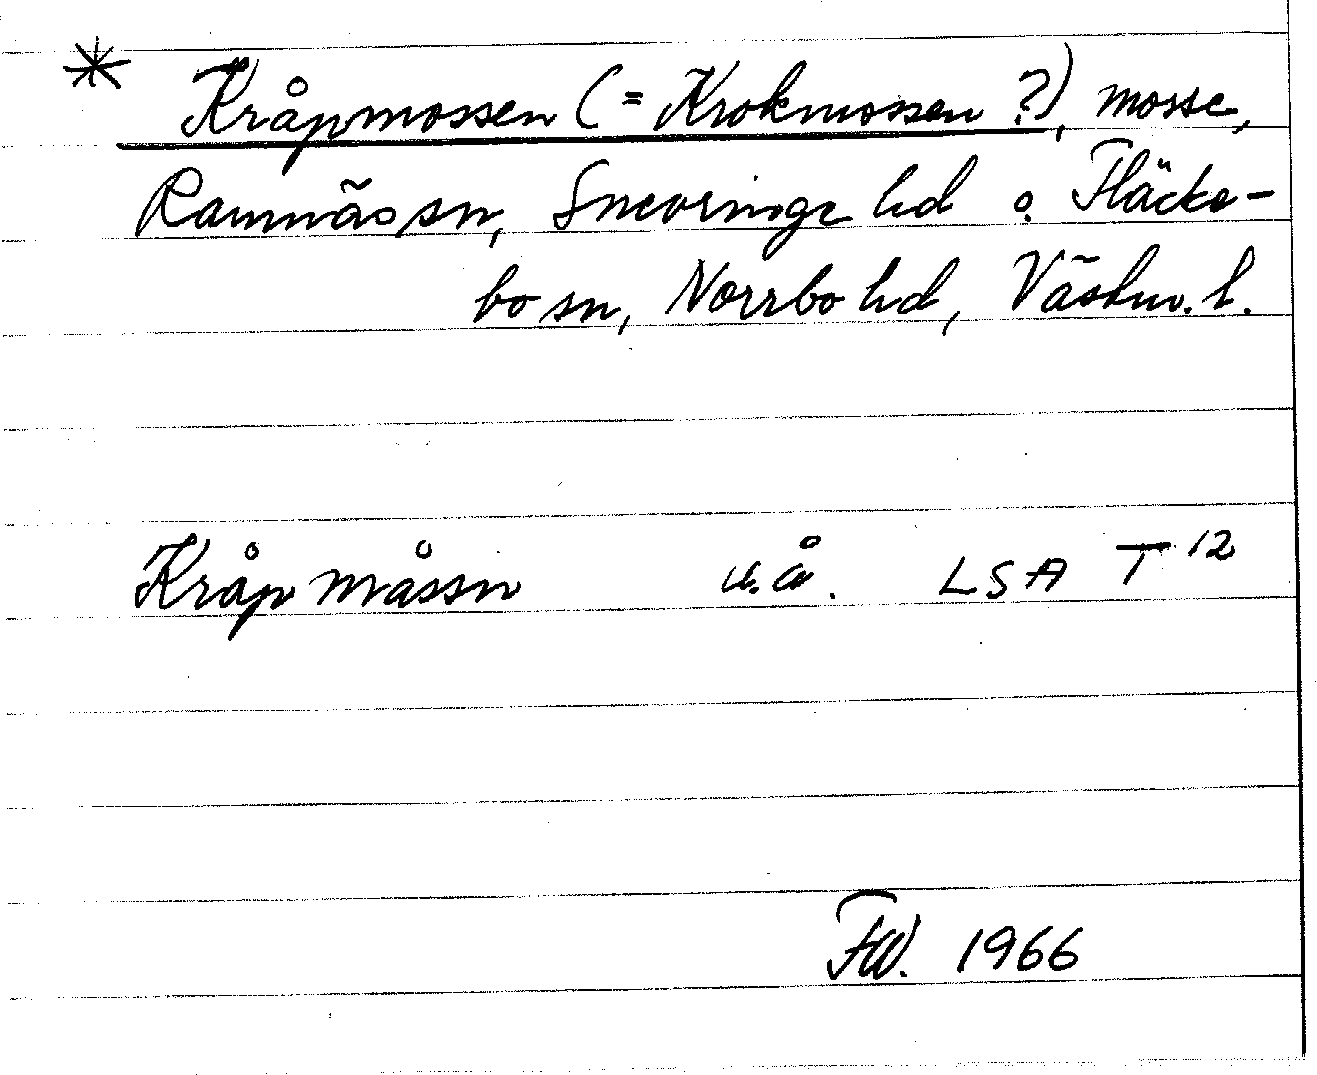 * Kråpmossen (= Krokmossen ?), mosse,
Ramnäs sn, Snevringe hd o. Fläcke-
bo sn, Norrbo hd, Västm. l.
Kråp måssn u.å. LSA T 12
FW. 1966